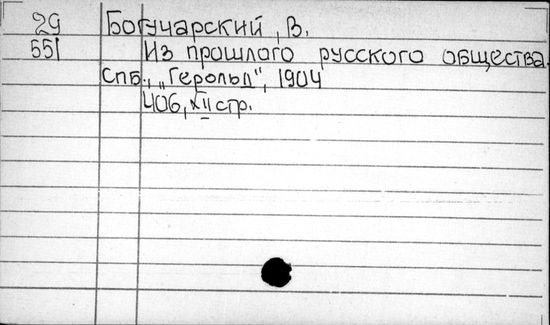 29 Богучарский, В.
551 Из прошлого русского общества.
Спб., „Герольд", 1904
406, XII стр.